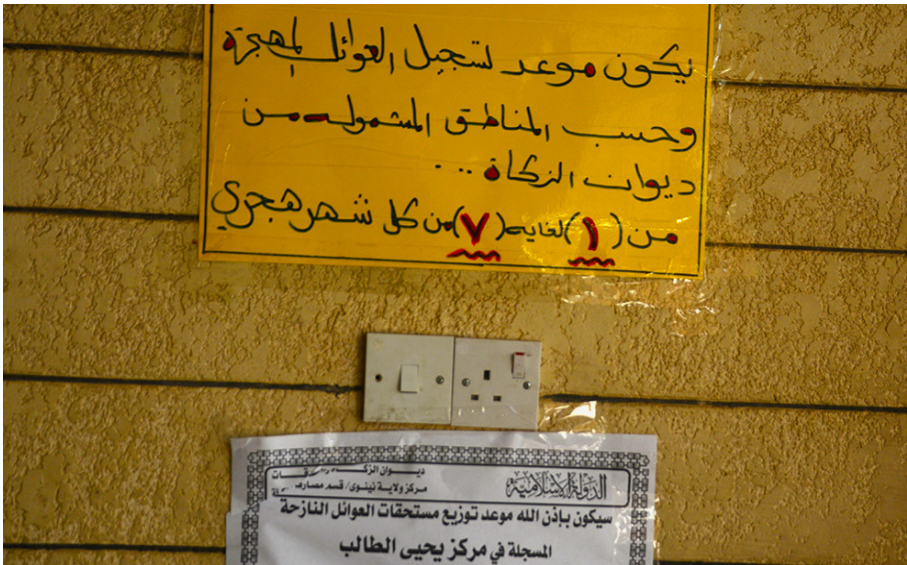 يكون موعد تسجيل العوائل المهجرة
وحسب المناطق المشمولة من
ديوان الزكاة ...
من (١) لغاية (٧) من كل شهر هجري
الدولة الإسلامية
ديوان الزكاة والصدقات
مركز ولاية نينوى / قسم مصارف
سيكون بإذن الله موعد توزيع مستحقات العوائل النازحة
المسجلة في مركز يحيى الطالب